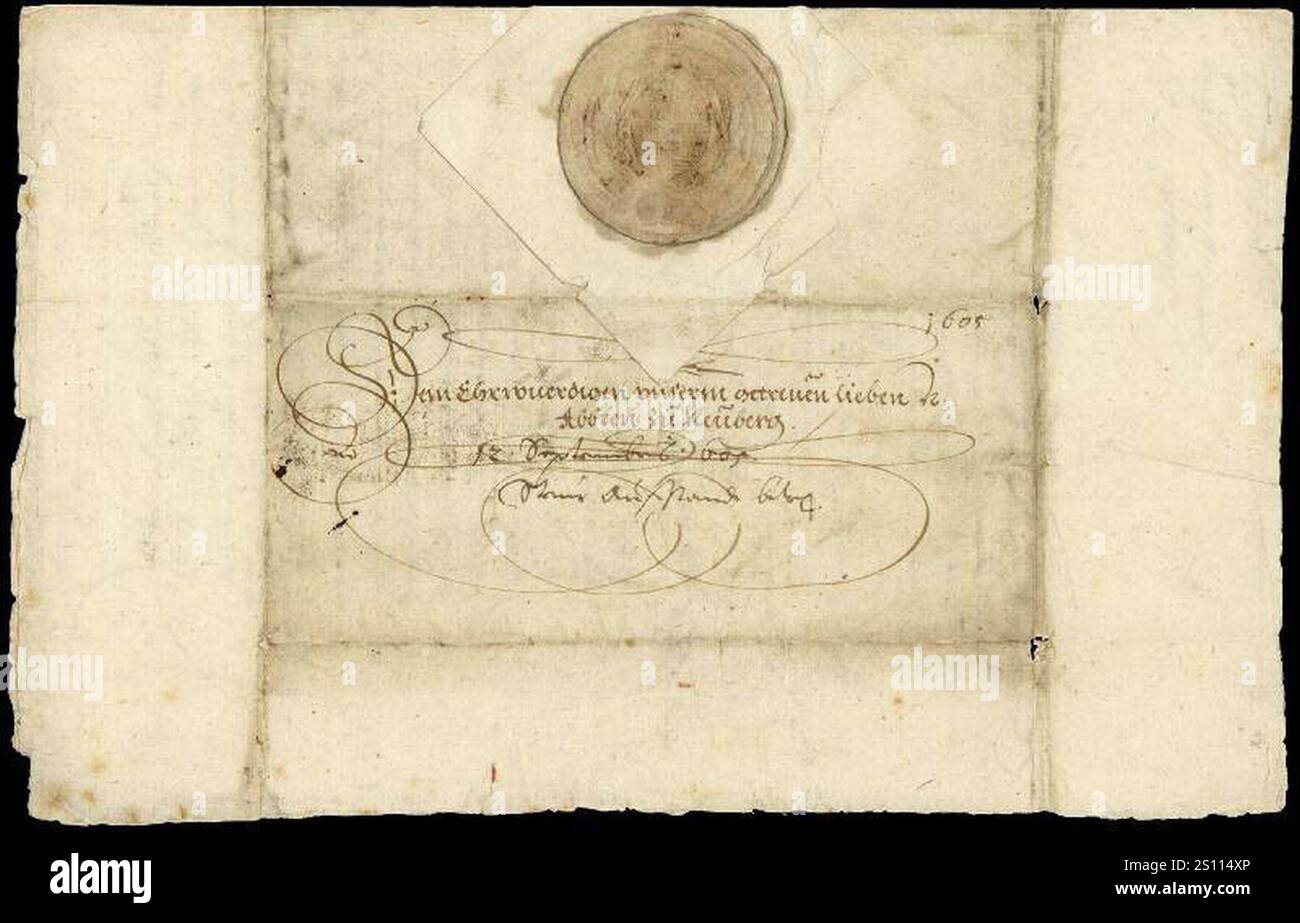 1605
Dem Ehrwuerdigen unserm getreuen lieben N.
Abbten zu Neuberg.
12. Septembris 1605
Steur Ausstandt
alamy
Image ID: 2S114XP
www.alamy.com